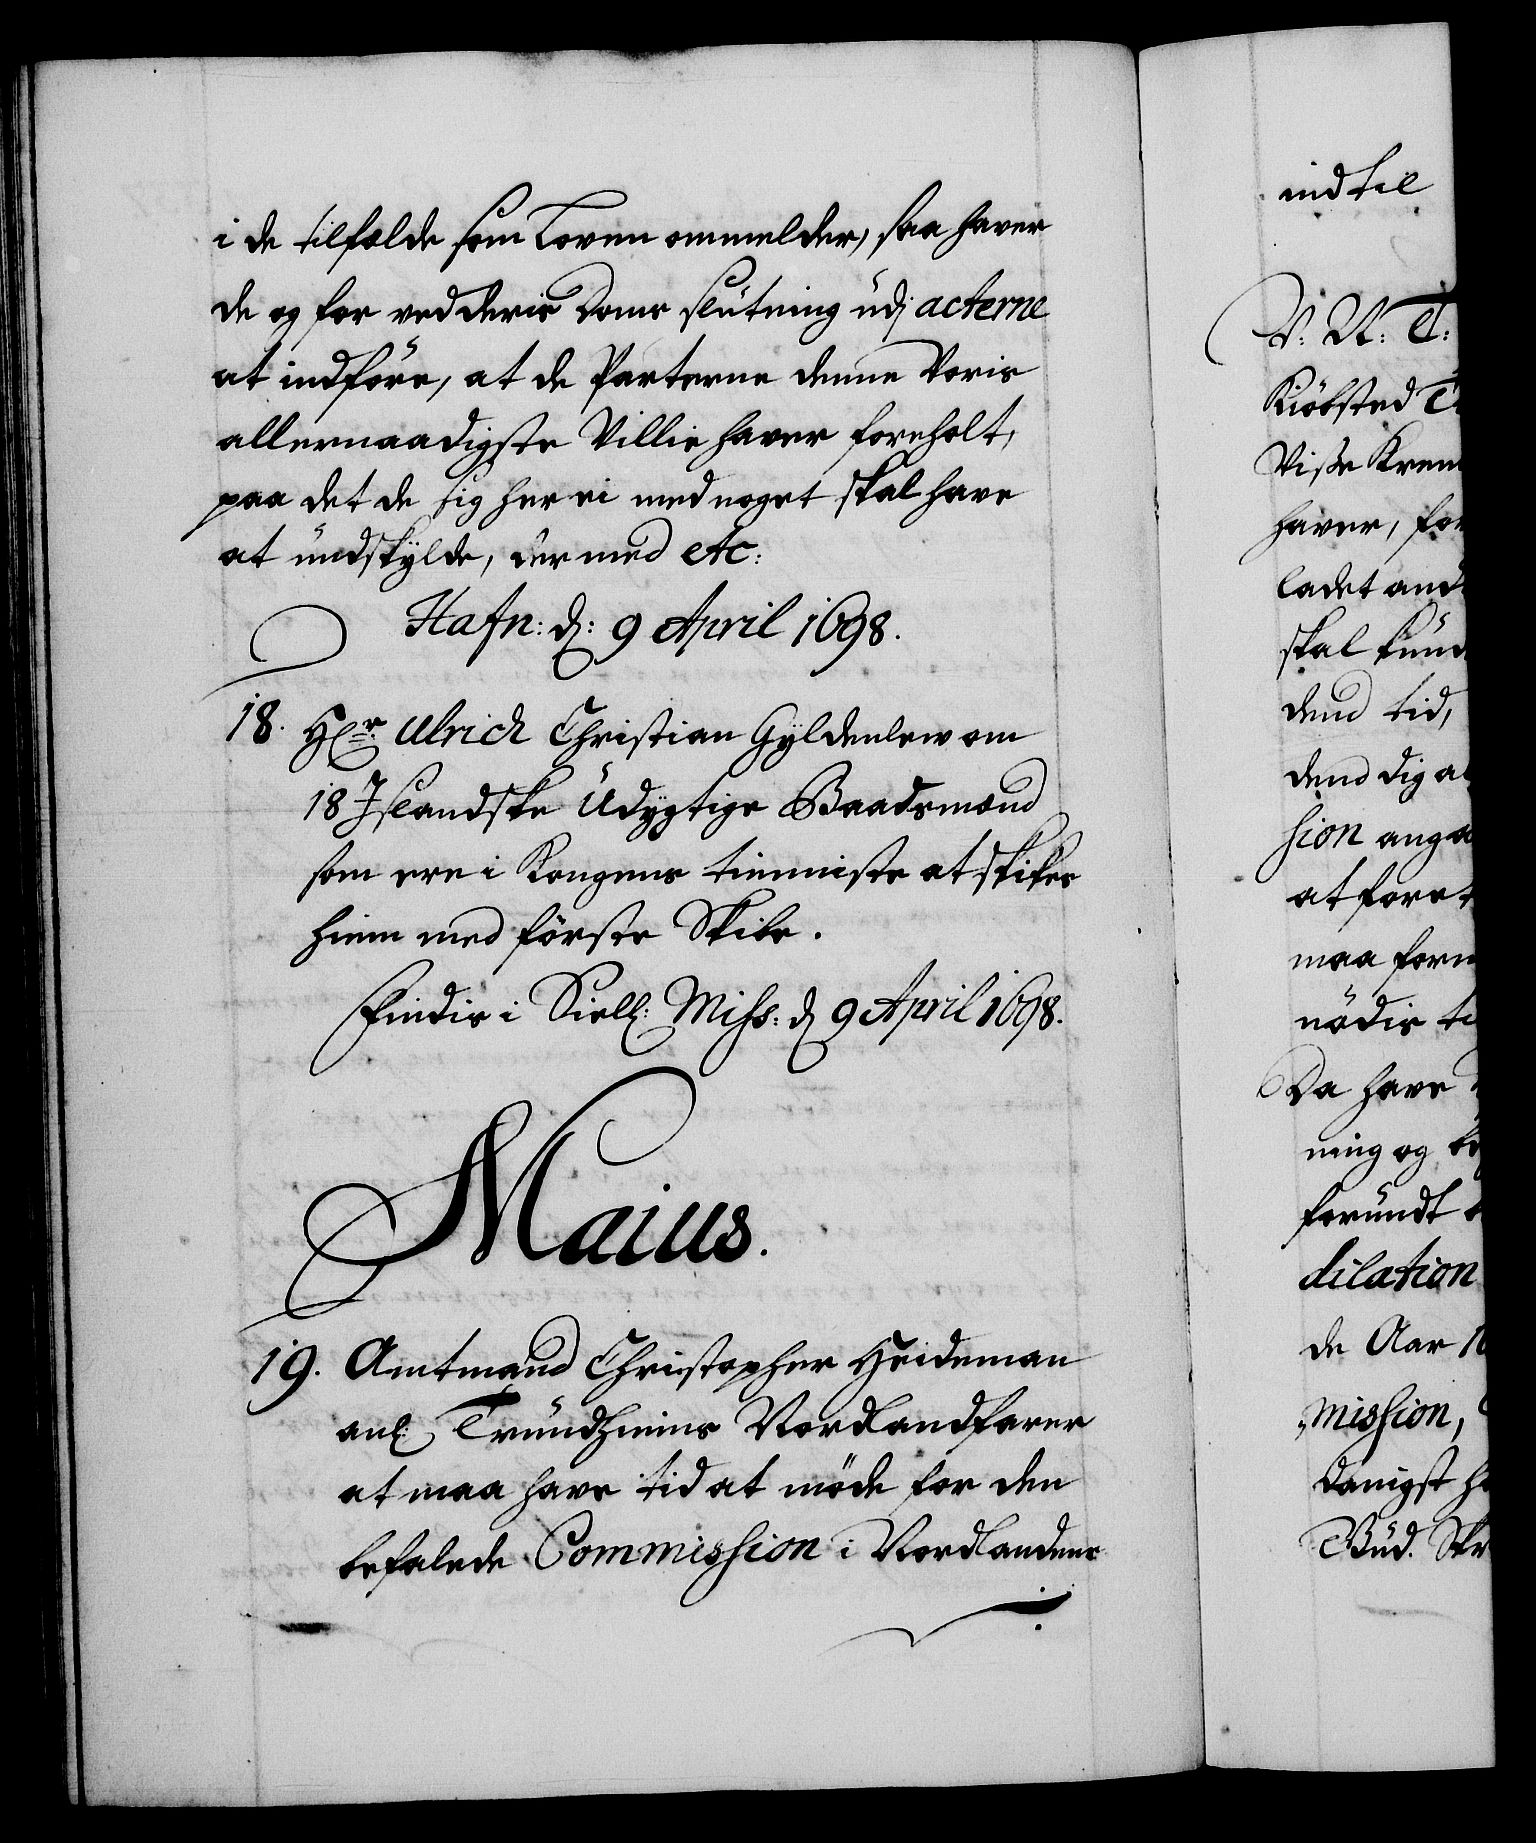 i de tilfelde som Loven ommelder, saa haver
de og for ved deris Doms slütning üdj acterne
at indföre, at de Parterne denne Voris
allernaadigste Villie haver foreholt,
paa det de sig her ei med noget skal have
at ündskÿlde, der med etc:
Hafn: d: 9 April 1698.
18. Hr. Ulrich Christian Gÿldenlew om
18 Islandske Udÿgtige Baadsmænd
som ere i Kongens tienniste at skikes
hiem med förste Skibe.
Findis i Siell: Miss: d 9 April 1698.
Maius.
19. Amtmand Christopher Heideman
anl: Trundhiems Nordlandfarer
at maa have tid at möde for den
befalede Commission i Nordlandene
indtil
V. N: T:
Kiöbsted
Visse
haver, for
ladet
skal
dend tid,
dend dig
sion
at
maa
nödis
Da have
ning og
forundt
dilation
de Aar
mission,
Danigst
Büd.